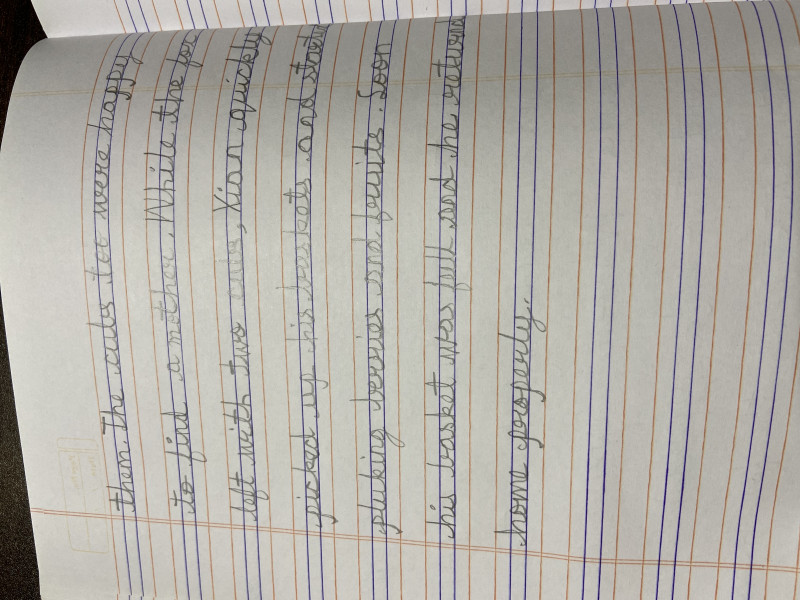 them. The cubs too were happy
to find a mother. While the
left with two cubs, Xian quickly
picked up his baskets and
pluking berries and fruits. Soon
his basket was full and he
home properly.